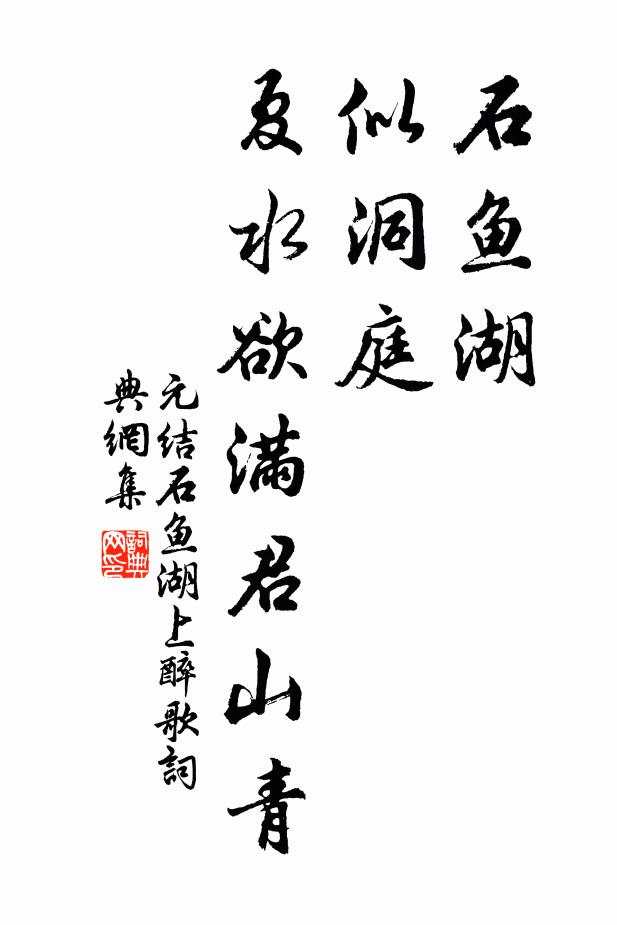 石鱼湖
似洞庭
夏水欲满君山青
元结石鱼湖上醉歌詞
典網集
詞典
网印